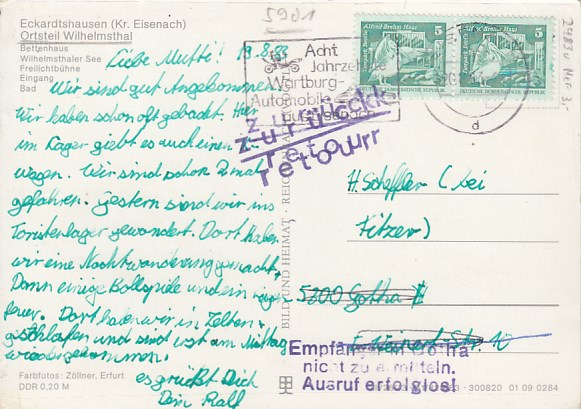 5901
Eckardtshausen (Kr. Eisenach)
Ortsteil Wilhelmsthal
Bettenhaus
Wilhelmsthaler See
Freilichtbühne
Eingang
Bad
Alfred Brehm Haus 5
Alfred Brehm Haus 5
Acht
Jahrzehnte
Wartburg-
Automobile
zurück
zurück
retour
retour
Liebe Mutti! 19.8.83
Wir sind gut angekommen
Wir haben schon oft gebadet. Hier
im Lager giebt es auch einen
wagen. Wir sind schon 2 mal
gefahren. Gestern sind wir ins
Toristenlager gewandert. Dort haben
wir eine Nachtwanderung gemacht,
Dann einige Ballspiele und ein
feuer. Dort haben wir in Zelten
geschlafen und sind erst am Mittag
wiedergekommen.
es grüßt Dich
Dein Ralf
BILD UND HEIMAT · REICHENBACH
H. Scheffler (bei
Fitzer)
5800 Gotha
Weinert-Str. 10
Empfänger in Gotha
nicht zu ermitteln.
Ausruf erfolglos!
Farbfotos: Zöllner, Erfurt
DDR 0,20 M
300820 01 09 0284